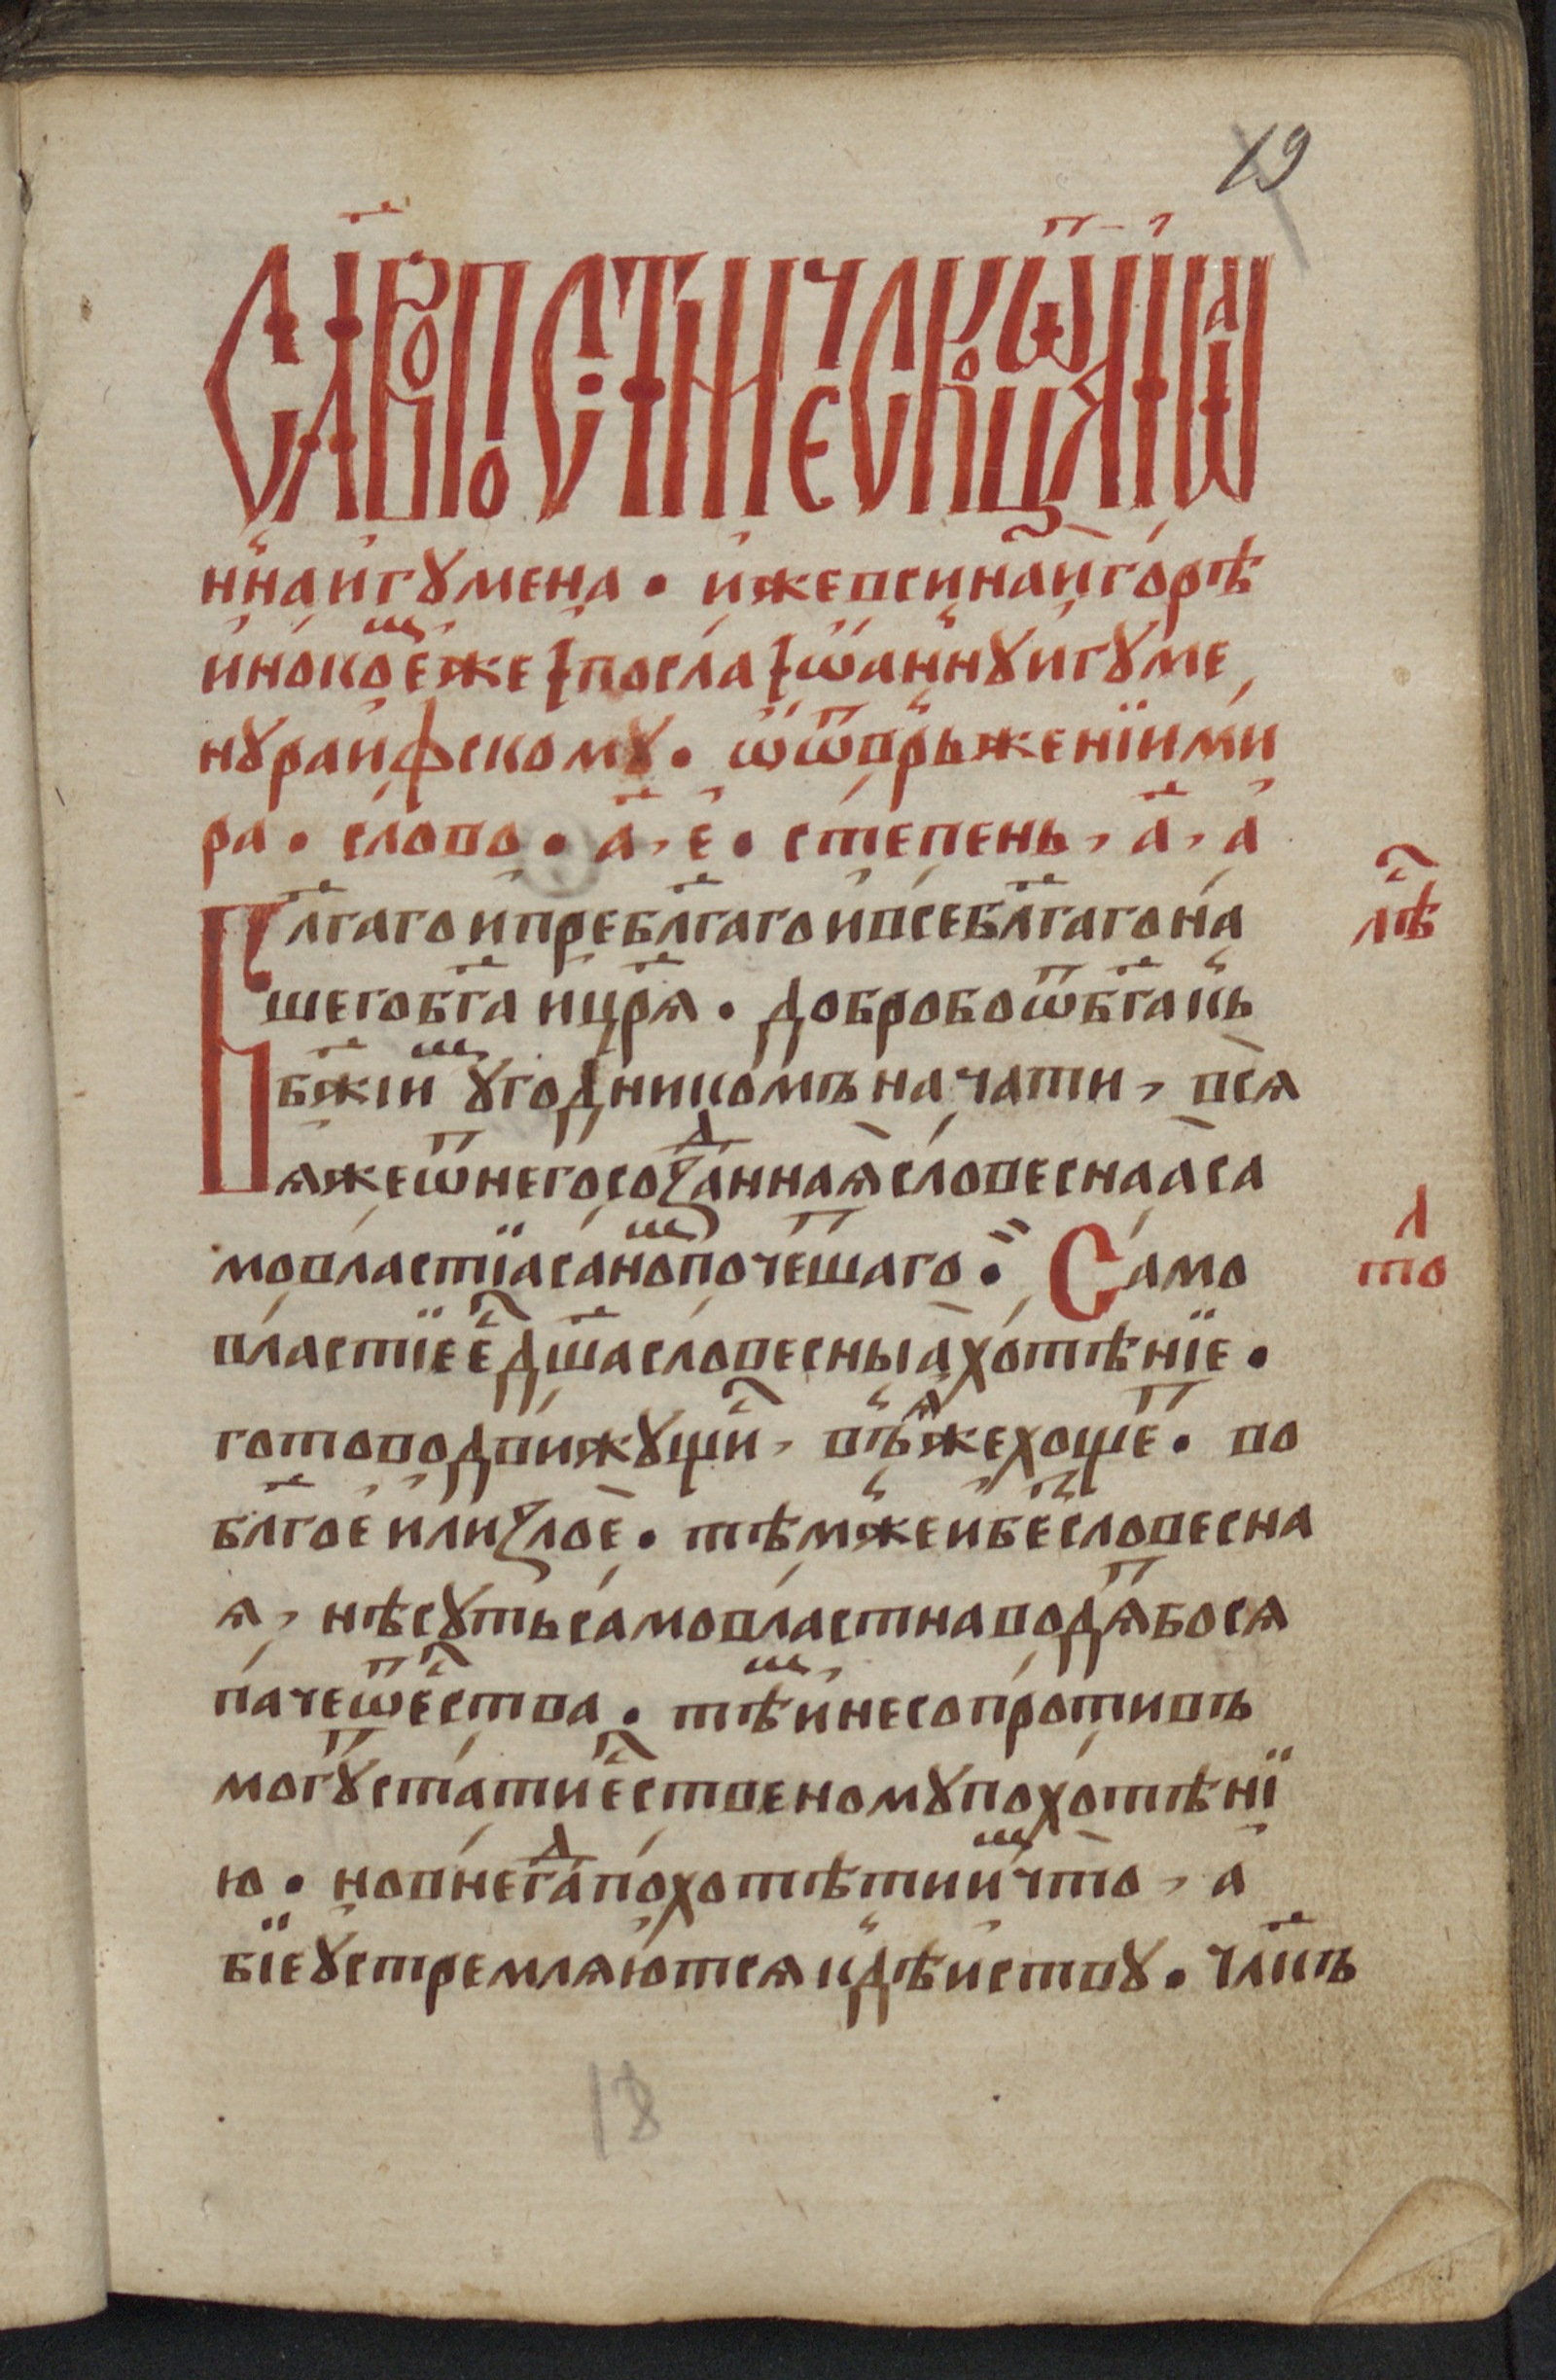 19
Слово постническое ѿ скиѧтаго Іѡа
нна игꙋмена · иже в синаи горѣ
инокѡ еже посла іѡаннꙋ игꙋме
нꙋ раифскомꙋ · ѡ ѿврьженїи ми
ра · слово · а҃ · е҃ · степень · а҃ · а
Блг҃аго и пребл҃гаго и всебл҃гаго на
шего бг҃а и цр҃ѧ · добро бо ѿ бг҃а къ
бж҃іи ꙋгодникомъ начати · всѧ
ѧже ѿ него созданнаѧ словеснаа са
мовластїа саномъ почешаго · Само
властїе е҆ дш҃а словесныа хотѣнїе ·
готово движꙋщи · въ ѧже хоще · во
бл҃гое или злое · тѣмже и бесловесна
ѧ · нѣсꙋть самовластна водѧ бо сѧ
паче ѿ ества · тѣ и не сопротивъ
могꙋ стати ественомꙋ похотѣнї
ю · но внегда похотѣти и что · а
бїе ꙋстремляются к дѣиствꙋ · чл҃къ
лѣ
л
то
18